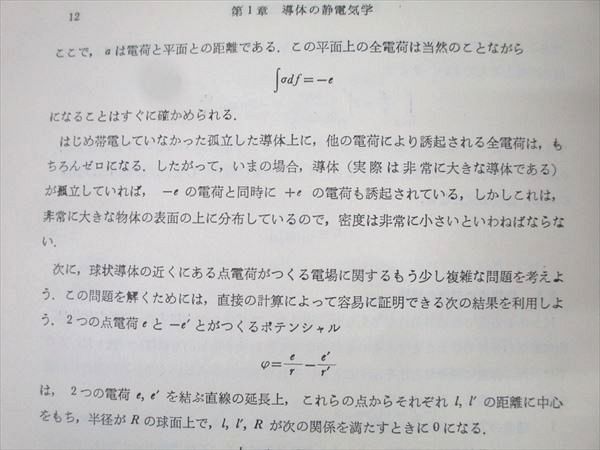 12
第1章 導体の静電気学
ここで，aは電荷と平面との距離である．この平面上の全電荷は当然のことながら
∫σdf=−e
になることはすぐに確かめられる．
はじめ帯電していなかった孤立した導体上に，他の電荷により誘起される全電荷は，も
ちろんゼロになる．したがって，いまの場合，導体（実際は非常に大きな導体である）
が孤立していれば， −e の電荷と同時に +e の電荷も誘起されている，しかしこれは，
非常に大きな物体の表面の上に分布しているので，密度は非常に小さいといわねばならな
い．
次に，球状導体の近くにある点電荷がつくる電場に関するもう少し複雑な問題を考えよ
う．この問題を解くためには，直接の計算によって容易に証明できる次の結果を利用しよ
う．2つの点電荷 e と −e′ とがつくるポテンシャル
φ=e/r−e′/r′
は， 2つの電荷 e, e′ を結ぶ直線の延長上， これらの点からそれぞれ l, l′ の距離に中心
をもち，半径が R の球面上で，l, l′, R が次の関係を満たすときに0になる．